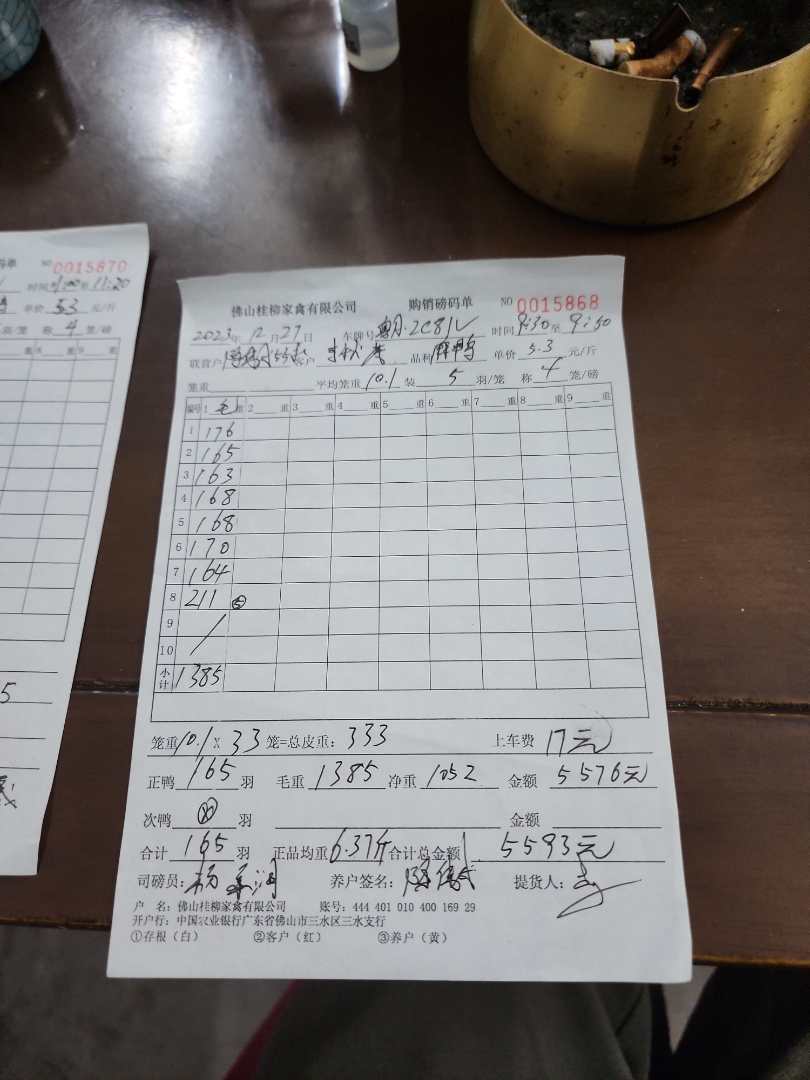 码单 NO 0015870
时间9:00至11:20
单价 5.3 元/斤
称 4 笼/磅
重 8 重 9 重
5
佛山桂柳家禽有限公司 购销磅码单 NO 0015868
2023年12月27日 车牌号 时间9:30至9:50
联营户 客户 品种麻鸭 单价 5.3 元/斤
笼重 平均笼重10.1 装 5 羽/笼 称 4 笼/磅
编号 1 毛 重 2 重 3 重 4 重 5 重 6 重 7 重 8 重 9 重
1 176
2 165
3 163
4 168
5 168
6 170
7 164
8 211 ⑤
9 /
10
小计 1385
笼重10.1 X 33 笼=总皮重: 333 上车费 17元
正鸭 165 羽 毛重 1385 净重 1052 金额 5576元
次鸭 羽 金额
合计 165 羽 正品均重6.37斤 合计总金额 5593元
司磅员: 养户签名: 提货人:
户 名: 佛山桂柳家禽有限公司 账号: 444 401 010 400 169 29
开户行: 中国农业银行广东省佛山市三水区三水支行
①存根(白) ②客户(红) ③养户(黄)